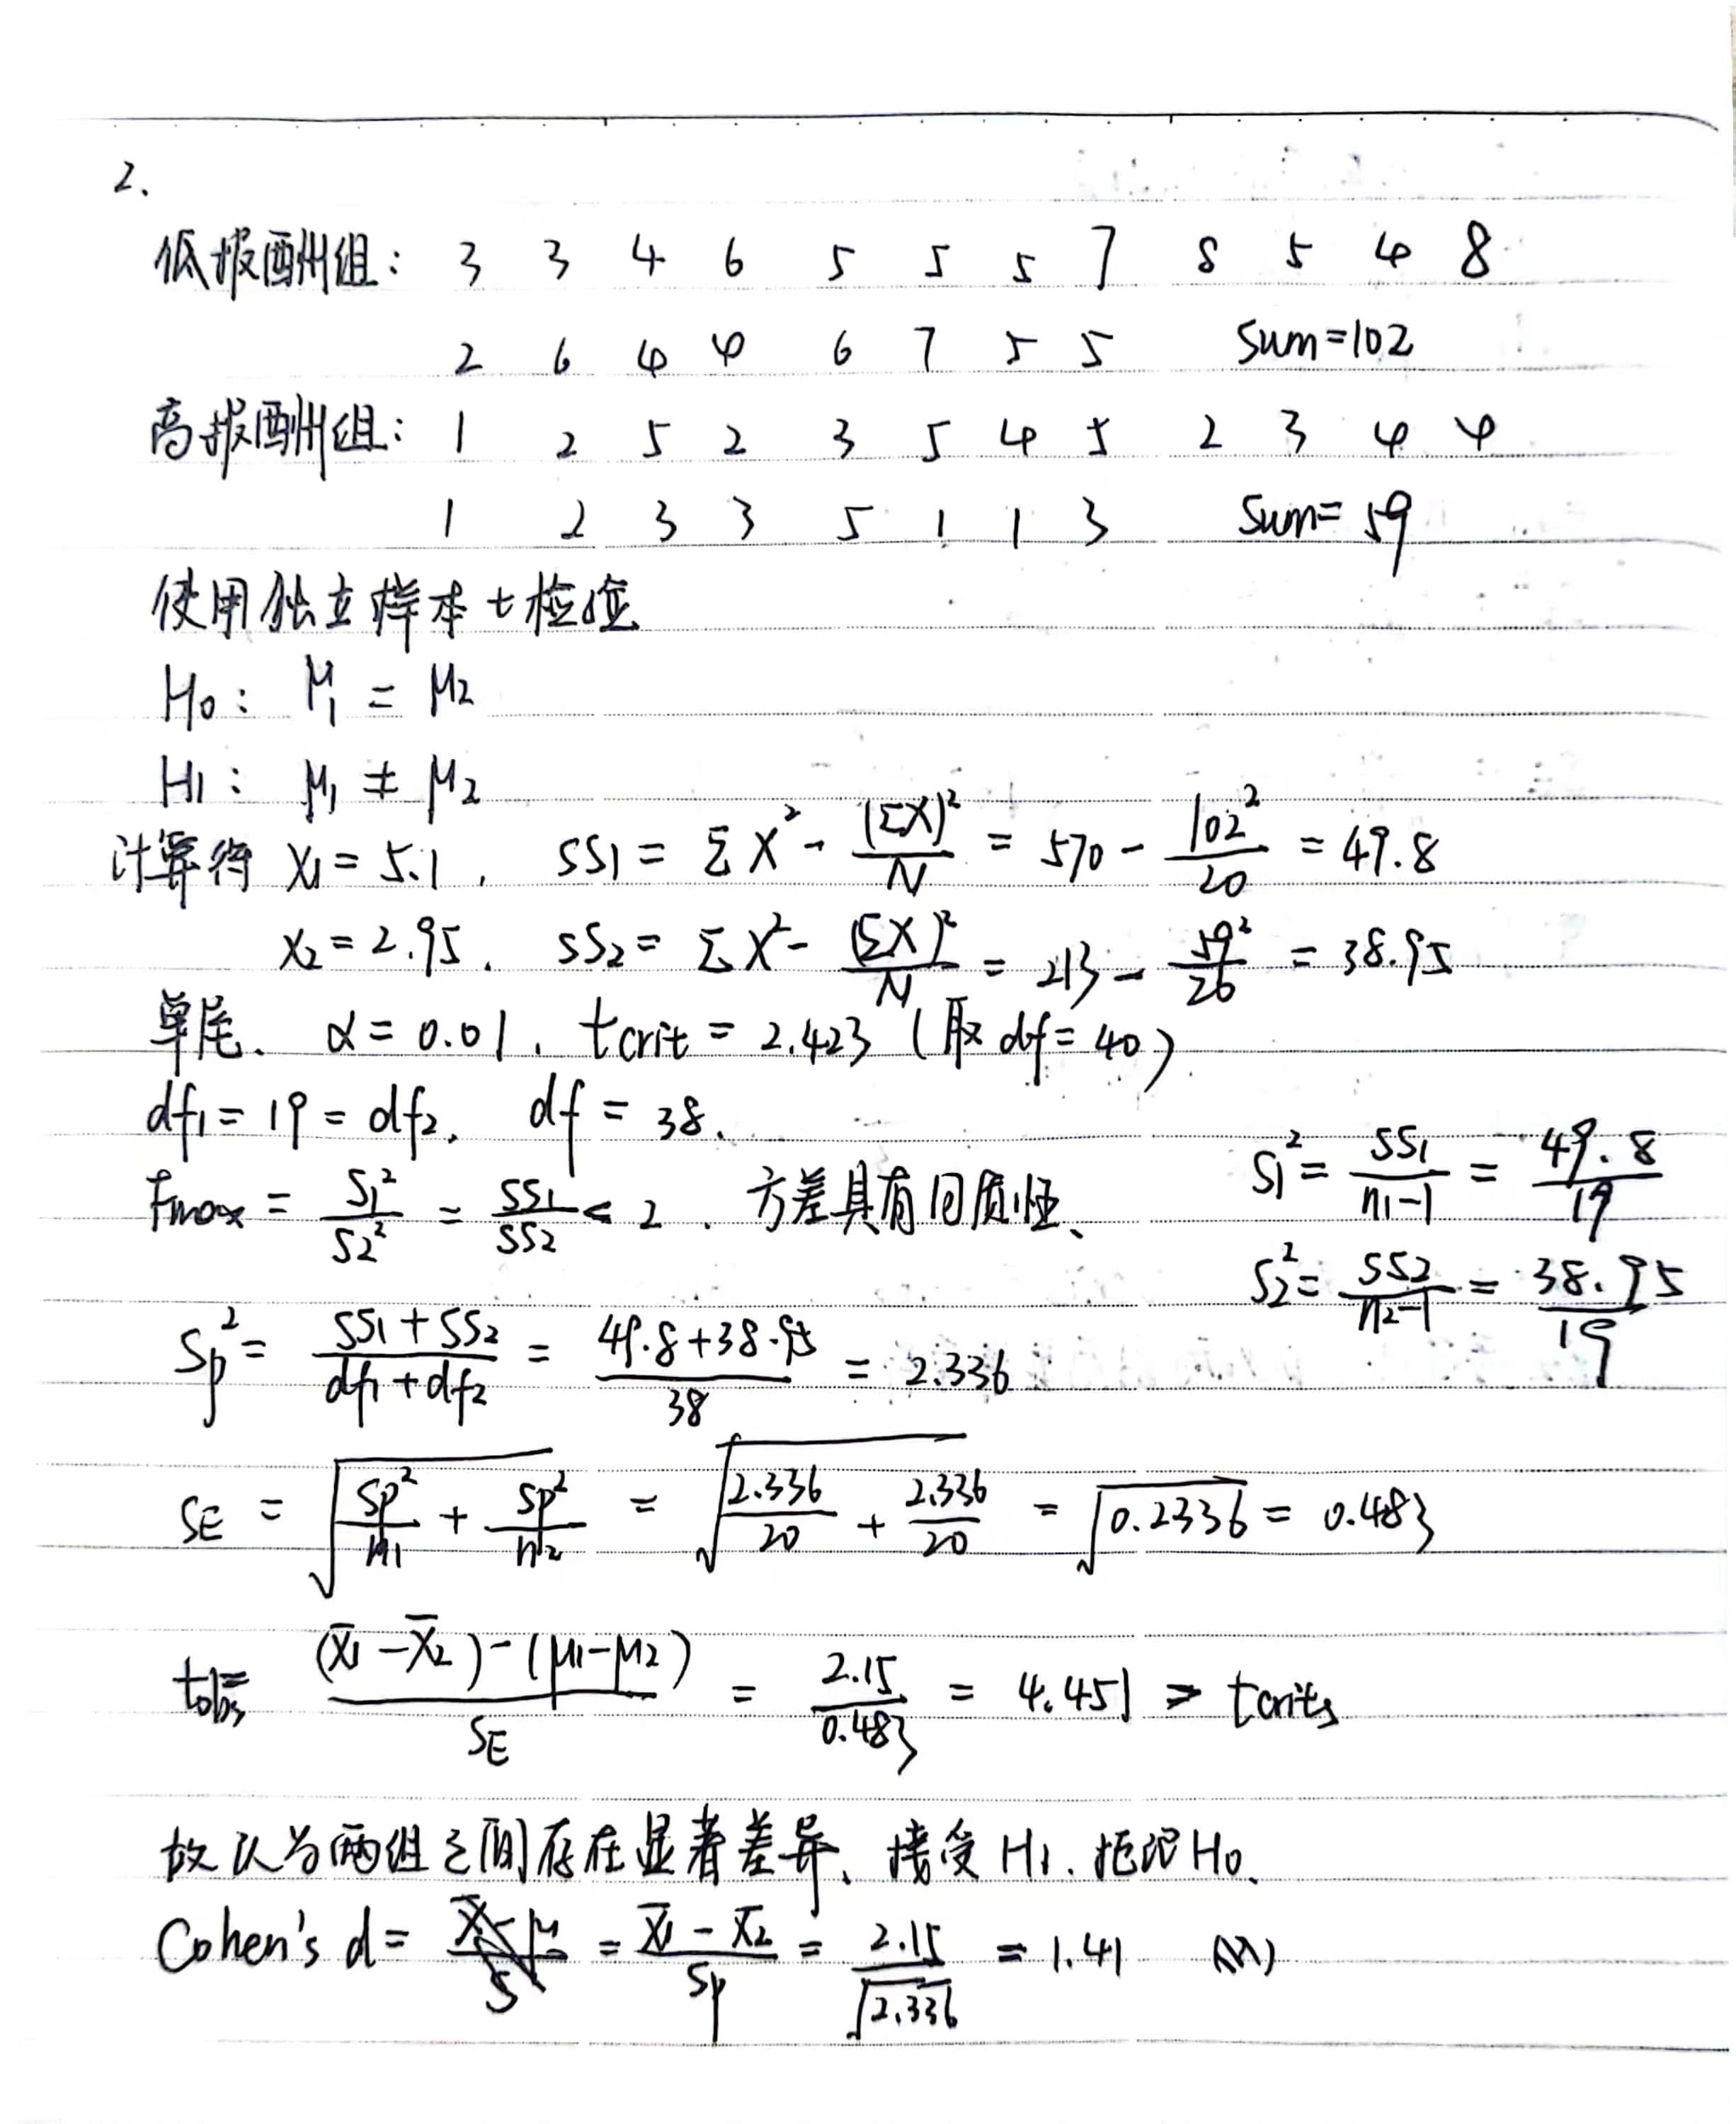 2.
低报酬组: 3 3 4 6 5 5 5 7 8 5 4 8
2 6 4 4 6 7 5 5 Sum=102
高报酬组: 1 2 5 2 3 5 4 5 2 3 4 4
1 2 3 3 5 1 1 3 Sum=59
使用独立样本t检验
H0: μ1 = μ2
H1: μ1 ≠ μ2
计算得 X1 = 5.1, SS1 = ΣX² - (ΣX)²/N = 570 - 102²/20 = 49.8
X2 = 2.95. SS2 = ΣX² - (ΣX)²/N = 213 - 59²/20 = 38.95
单尾. α = 0.01, tcrit = 2.423 (取 df = 40)
df1 = 19 = df2, df = 38.
Fmax = S1²/S2² = SS1/SS2 < 2. 方差具有同质性、
S1² = SS1/(n1-1) = 49.8/19
S2² = SS2/(n2-1) = 38.95/19
Sp² = (SS1+SS2)/(df1+df2) = (49.8+38.95)/38 = 2.336
SE = √(Sp²/n1 + Sp²/n2) = √(2.336/20 + 2.336/20) = √0.2336 = 0.483
tobs = ((X̄1 - X̄2) - (μ1-μ2))/SE = 2.15/0.483 = 4.451 > tcrit
故认为两组之间存在显著差异、接受H1. 拒绝H0.
Cohen's d = = (X̄1 - X̄2)/Sp = 2.15/√2.336 = 1.41